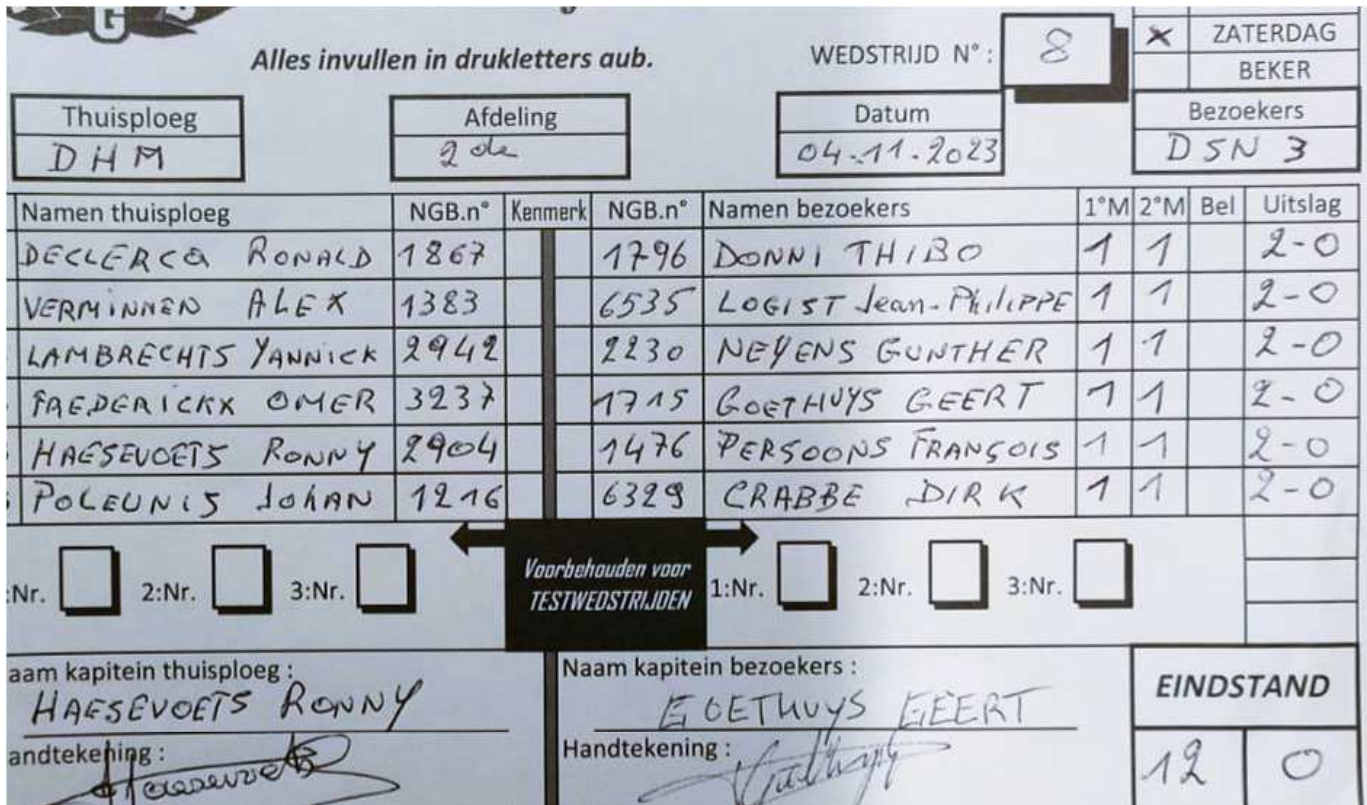 G
Alles invullen in drukletters aub.
WEDSTRIJD N° : 8
x ZATERDAG
BEKER
Thuisploeg Afdeling Datum Bezoekers
DHM 2de 04-11-2023 DSN 3
Namen thuisploeg NGB.n° Kenmerk NGB.n° Namen bezoekers 1°M 2°M Bel Uitslag
DECLERCQ RONALD 1867 1796 DONNI THIBO 1 1 2-0
VERMINNEN ALEX 1383 6535 LOGIST Jean-PhiliPPE 1 1 2-0
LAMBRECHTS YANNICK 2942 2230 NEYENS GUNTHER 1 1 2-0
FREDERICKX OMER 3237 1715 GOETHUYS GEERT 1 1 2-0
HAESEVOETS RONNY 2904 1476 PERSOONS FRANÇOIS 1 1 2-0
POLEUNIS JOHAN 1216 6329 CRABBE DIRK 1 1 2-0
:Nr. 2:Nr. 3:Nr. Voorbehouden voor TESTWEDSTRIJDEN 1:Nr. 2:Nr. 3:Nr.
aam kapitein thuisploeg : Naam kapitein bezoekers : EINDSTAND
HAESEVOETS RONNY GOETHUYS GEERT
andtekening : Handtekening : 12 0